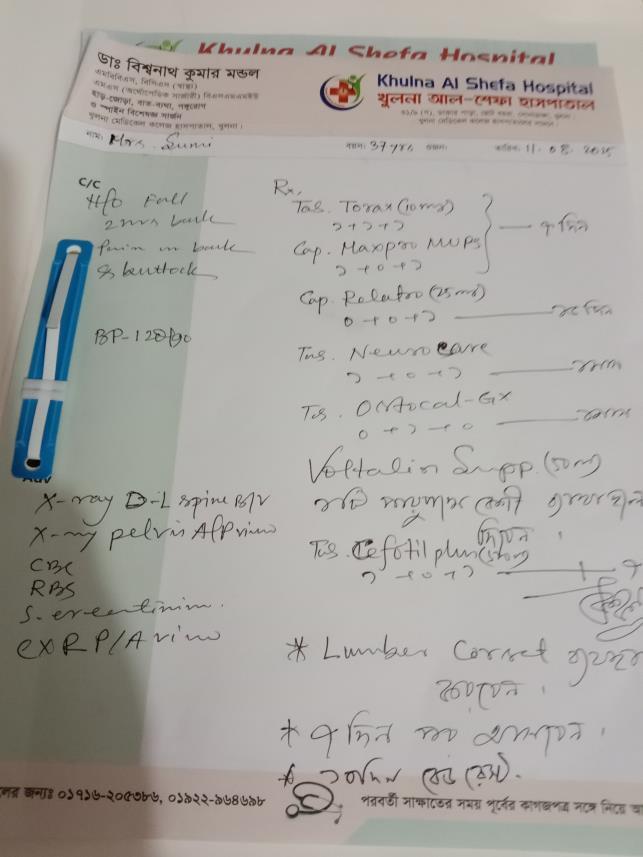 Khulna Al Shefa Hospital
ডাঃ বিশ্বনাথ কুমার মন্ডল
হাড়-জোড়া, বাত-ব্যথা, পঙ্গুরোগ
ও স্পাইন বিশেষজ্ঞ সার্জন
খুলনা মেডিকেল কলেজ হাসপাতাল, খুলনা।
Khulna Al Shefa Hospital
খুলনা আল-শেফা হাসপাতাল
নাম: Mrs. Sumi
বয়স: 37 yrs
তারিখ: 11. 08. 2025
C/C
H/o Fall
2 hrs back
Pain in back
& buttock
BP-120/90
X-ray D-L spine B/V
X-ray pelvis A/P view
CBC
RBS
S. creatinine.
CXR P/A view
Rx,
Tab. Torax (10mg)
১+১+১
Cap. Maxpro MUPS
১+০+১
৭ দিন
Cap. Relatro (25mg)
০+০+১
Tab. Neurocare
১+০+১
Tab. Ostocal-GX
০+১+০
Voltalin Supp. (50mg)
Tab. Cefotil plus (500mg)
১+০+১
* Lumber Corset ব্যবহার
করবেন।
* ৭ দিন পর আসবেন।
* ১০দিন বেড রেস্ট।
০১৭১৬-২০৫৩৮৬, ০১৯২২-৯৬৪৬৯৮
পরবর্তী সাক্ষাতের সময় পূর্বের কাগজপত্র সঙ্গে নিয়ে